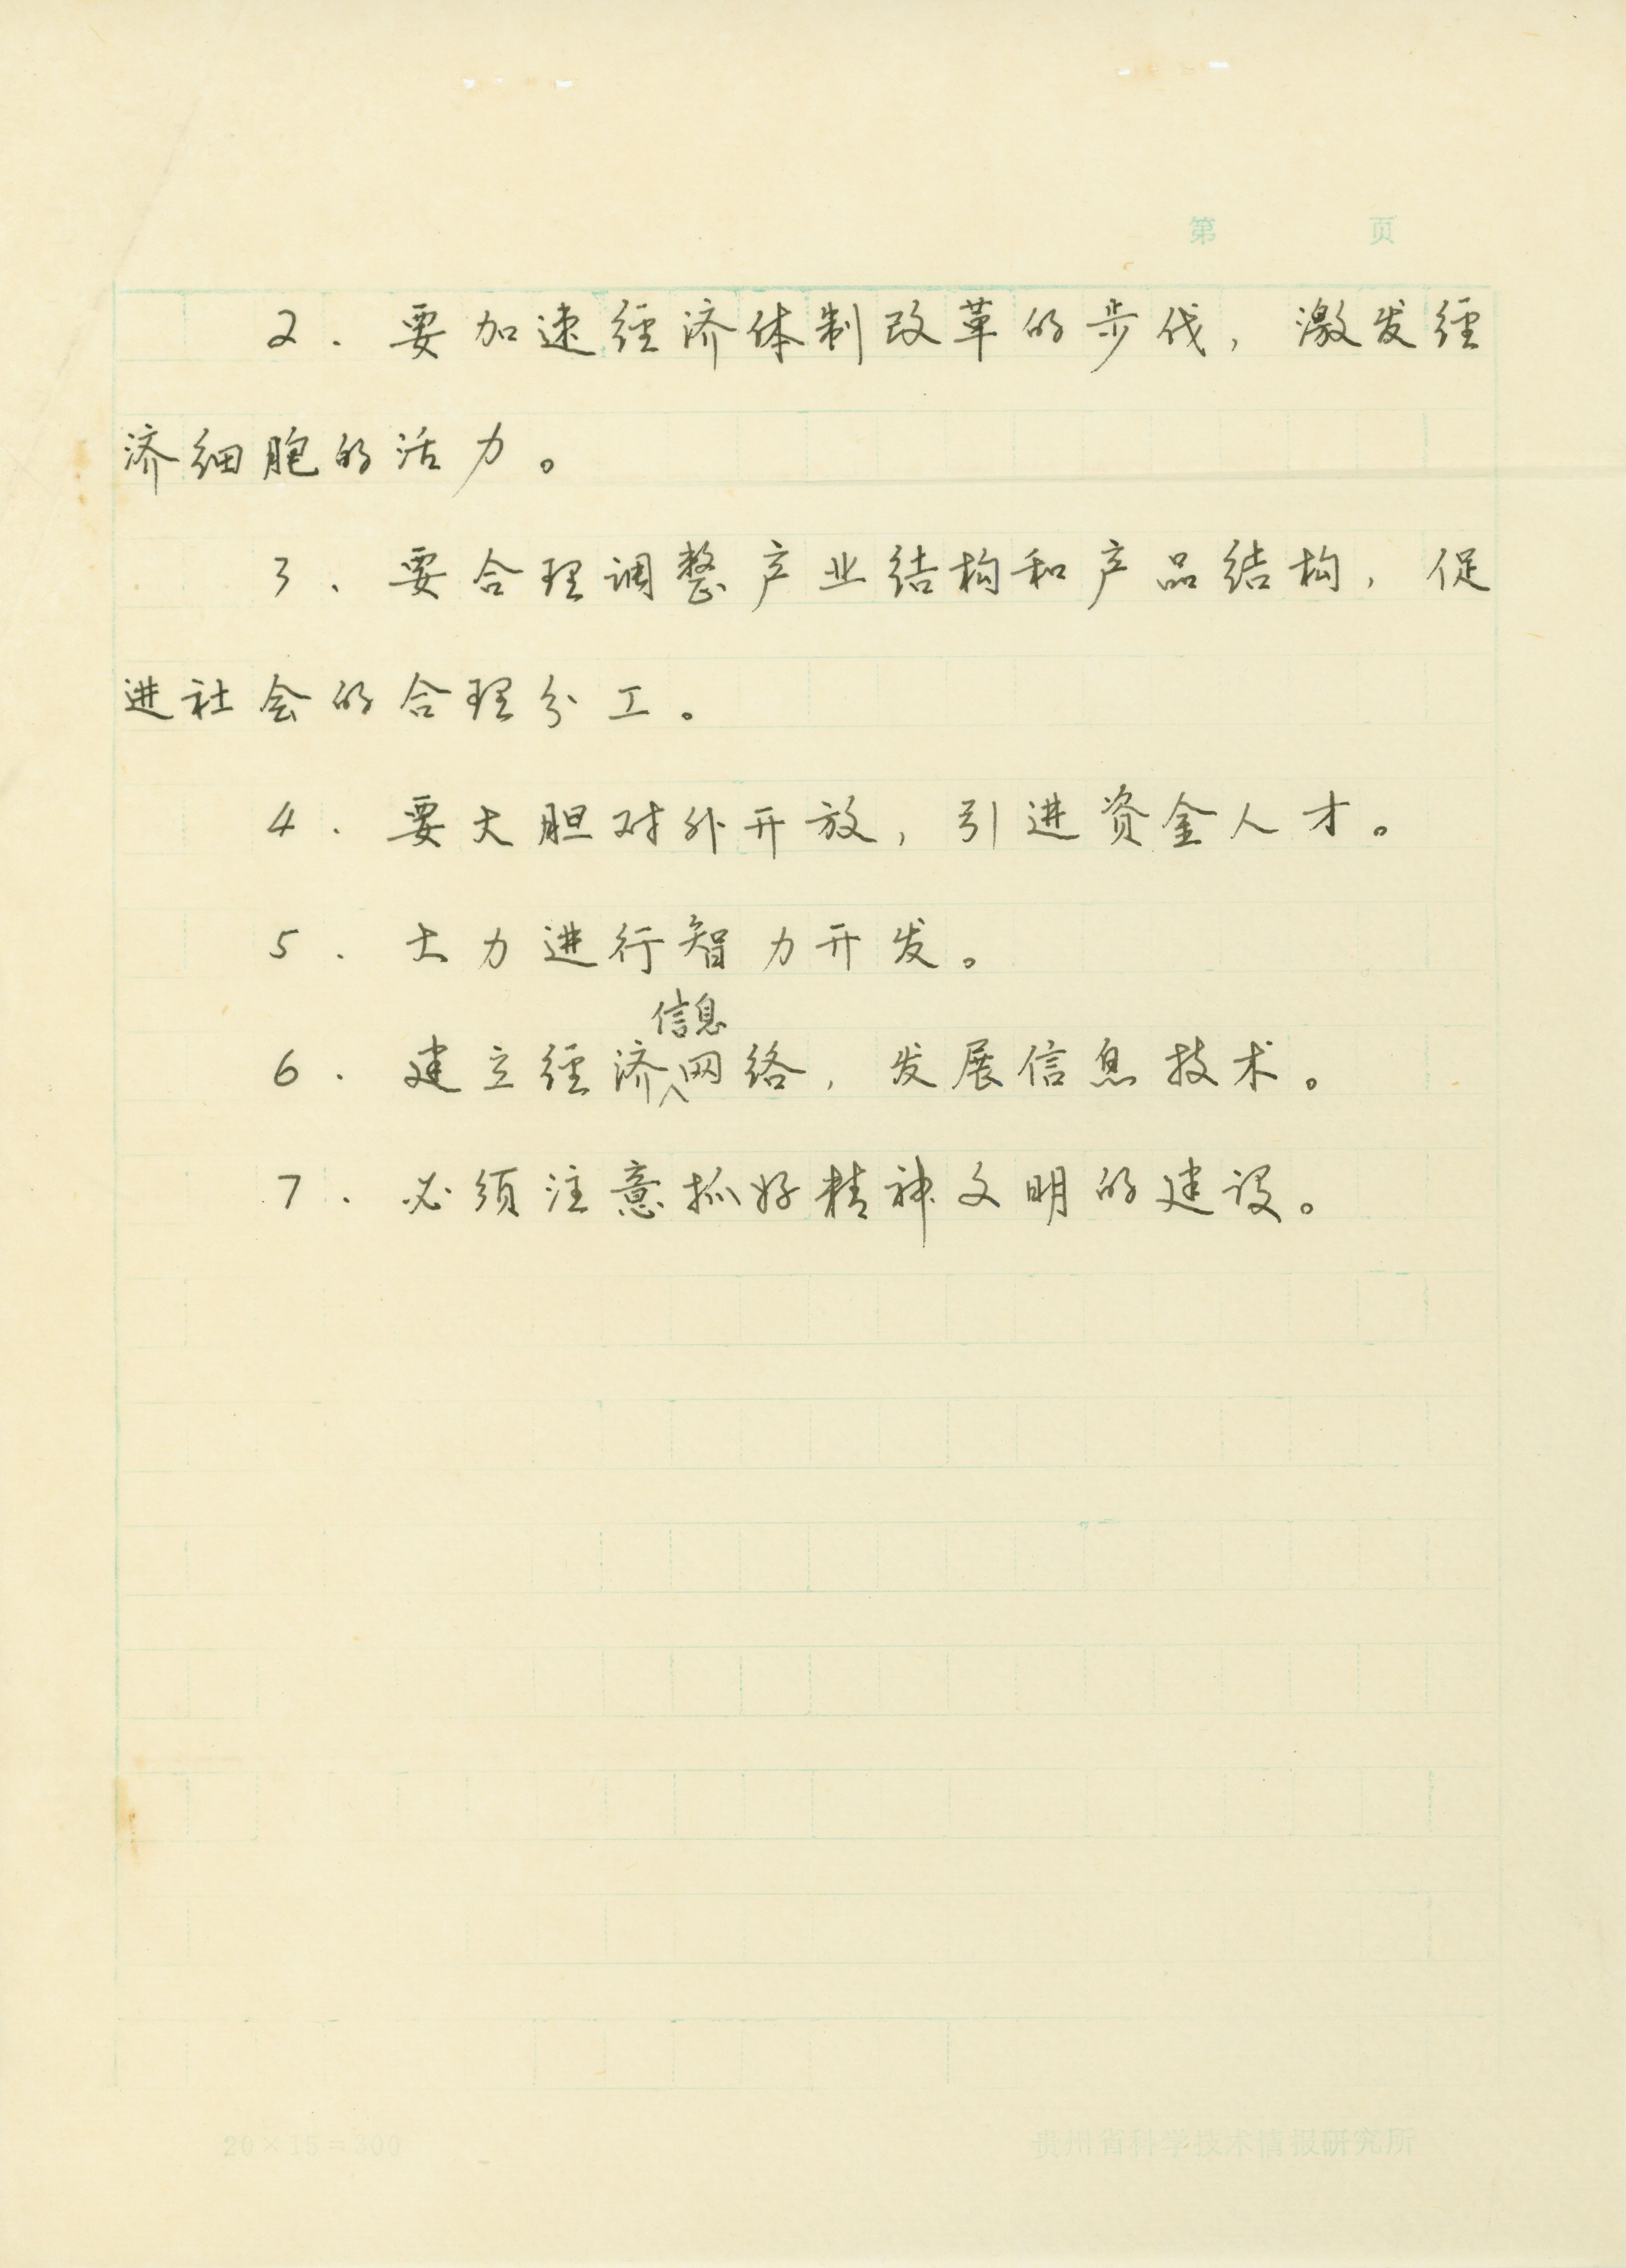 第 页
2. 要加速经济体制改革的步伐，激发经
济细胞的活力。
3. 要合理调整产业结构和产品结构，促
进社会的合理分工。
4. 要大胆对外开放，引进资金人才。
5. 大力进行智力开发。
信息
6. 建立经济网络，发展信息技术。
7. 必须注意抓好精神文明的建设。
20×15=300 贵州省科学技术情报研究所